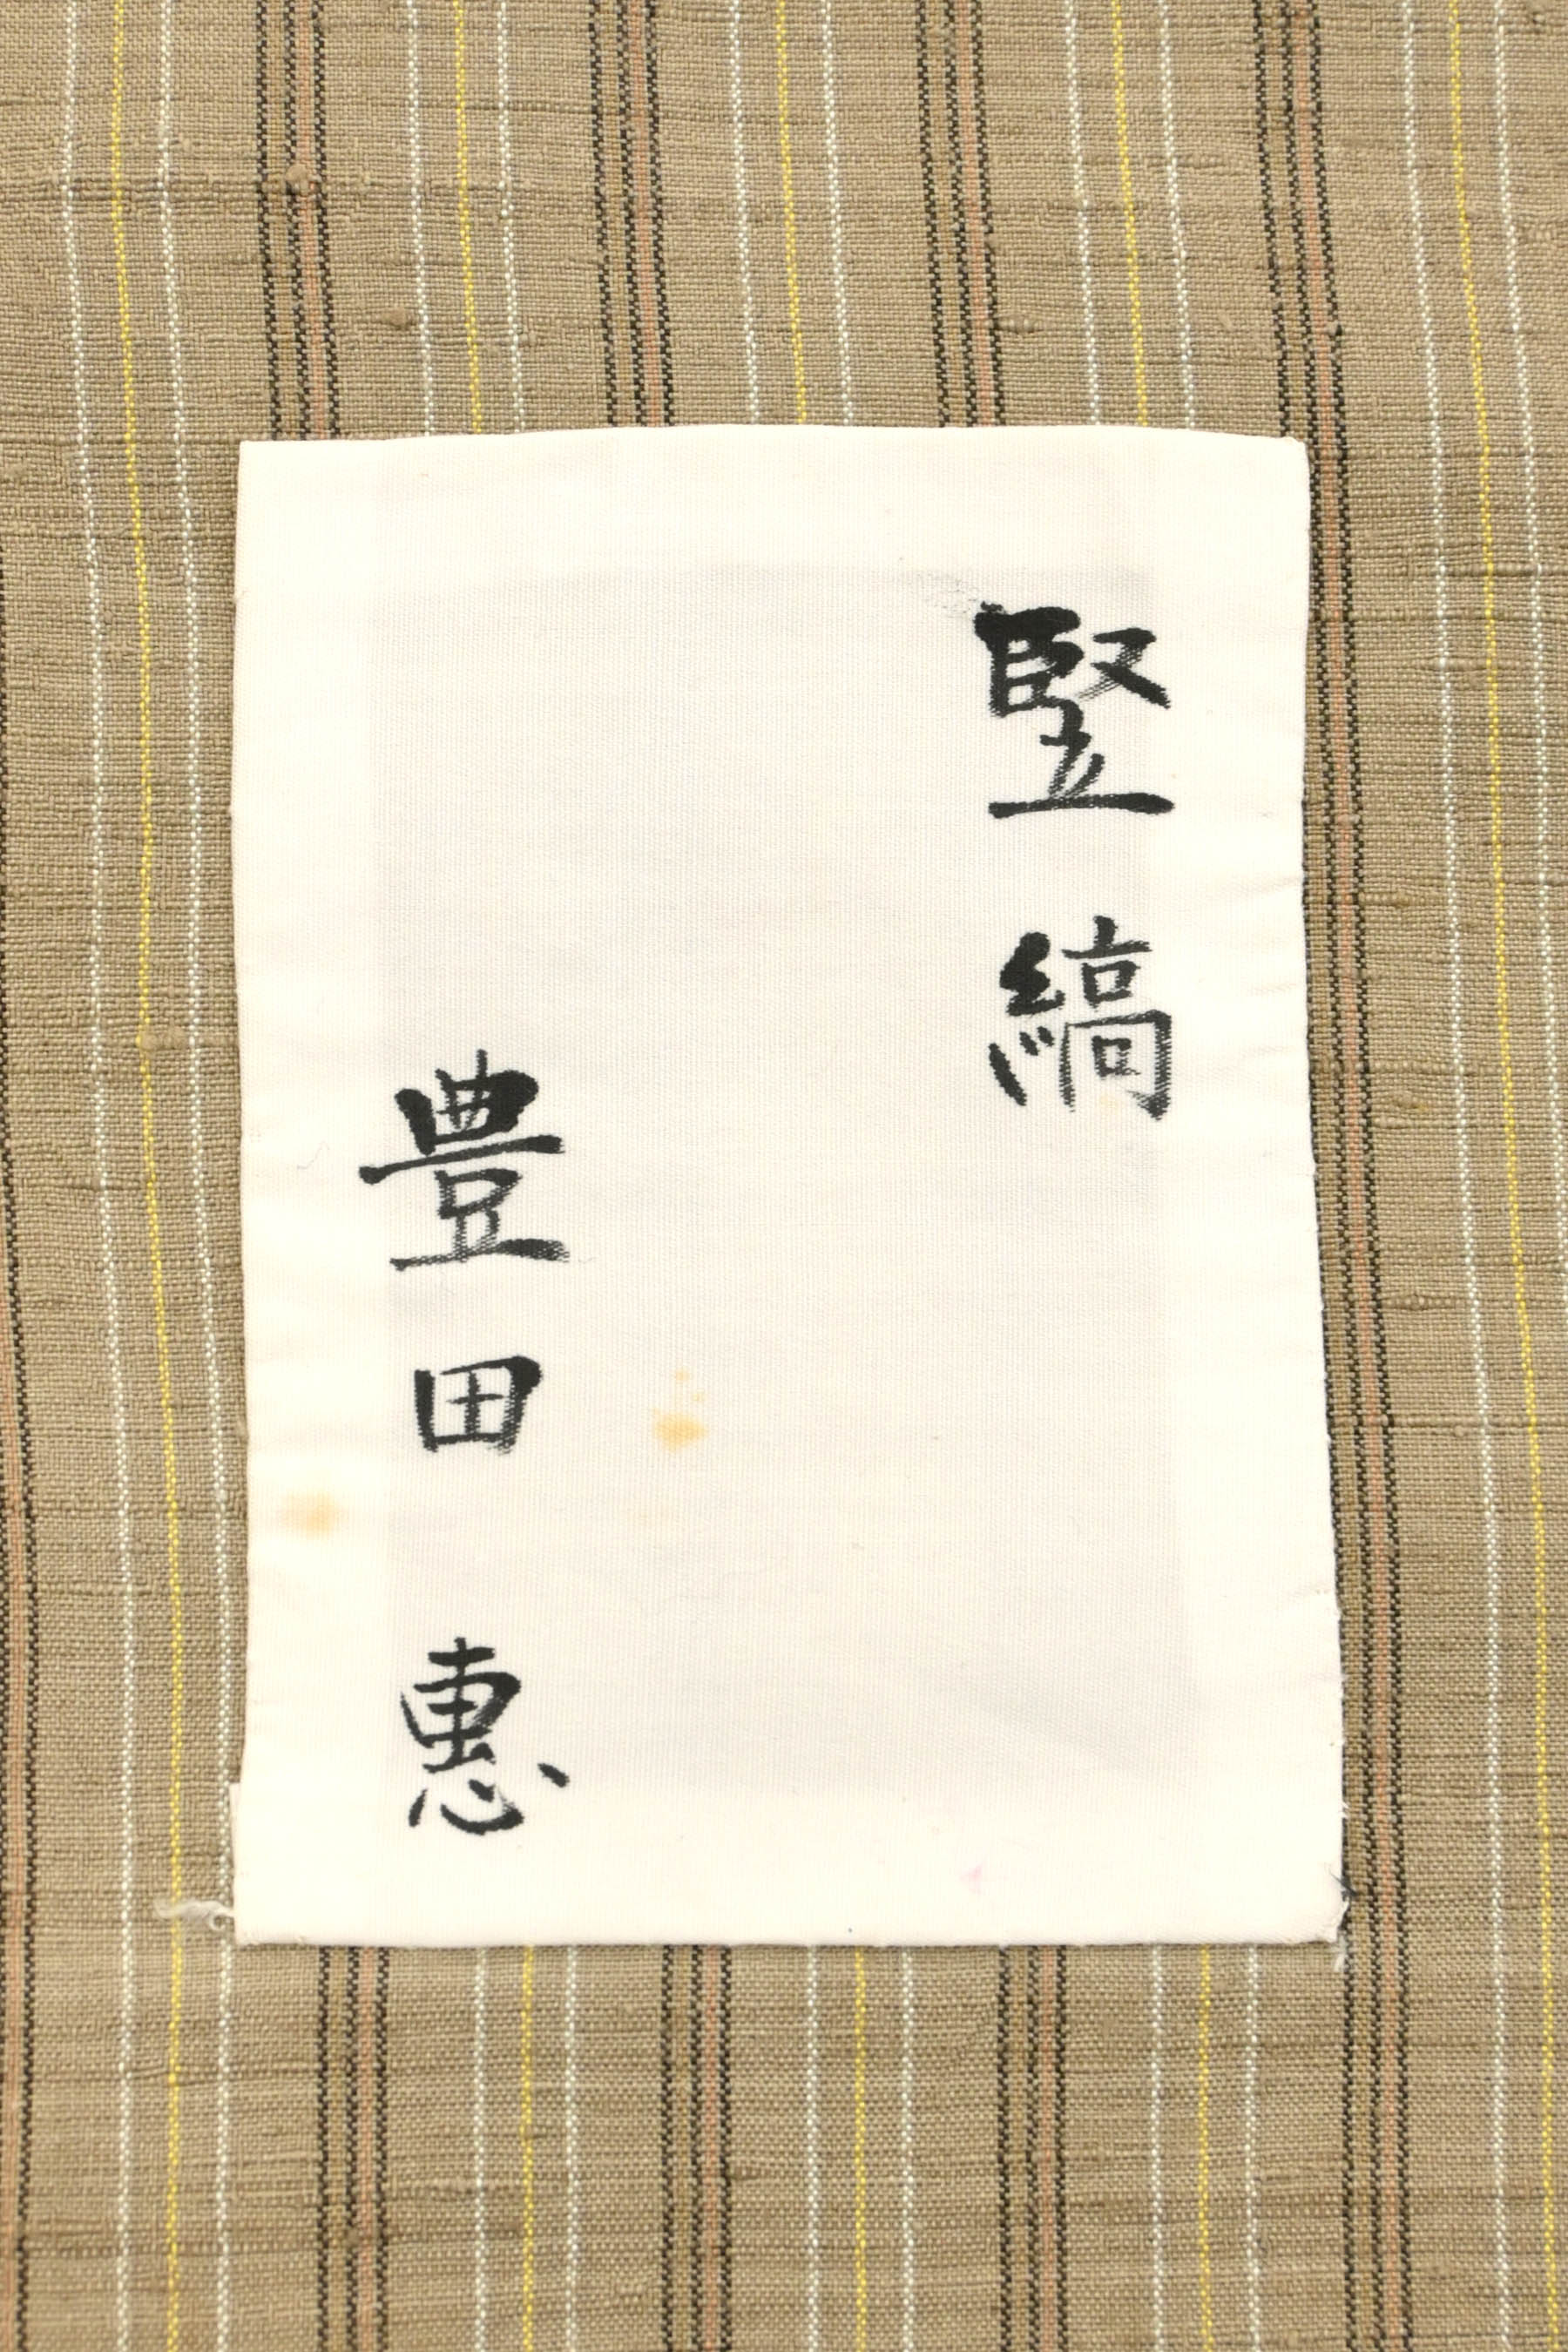 竪縞
豊田惠